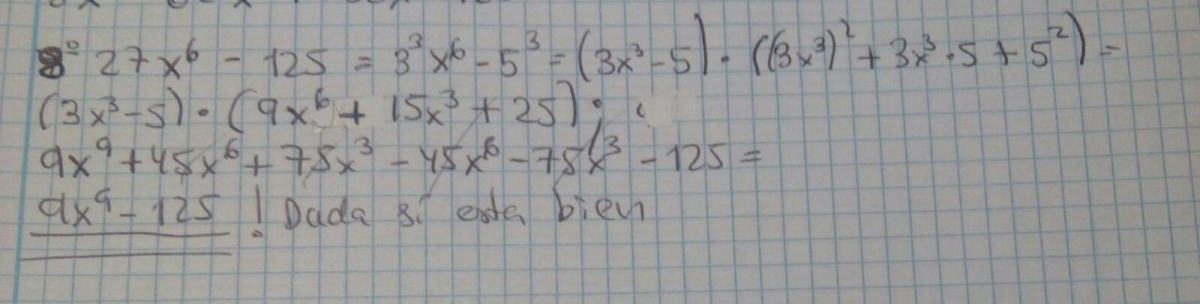 8º 27x⁶ - 125 = 3³x⁶ - 5³ = (3x³ - 5) · ((3x³)² + 3x³ · 5 + 5²) =
(3x³ - 5) · (9x⁶ + 15x³ + 25);
9x⁹ + 45x⁶ + 75x³ - 45x⁶ - 75x³ - 125 =
9x⁹ - 125 ! Duda si esta bien